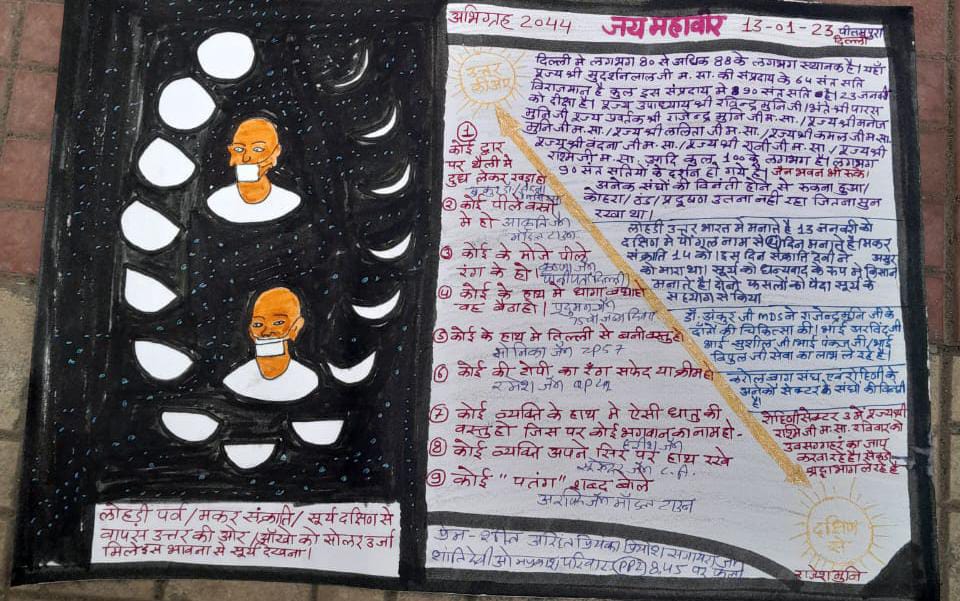 अभिग्रह 2044 जय महावीर 13-01-23 पीतमपुरा दिल्ली
उत्तर की ओर
दिल्ली मे लगभग 80 से अधिक 88 के लगभग स्थानक है। यहाँ
पूज्य श्री सुदर्शनलाल जी म. सा. की संप्रदाय के 64 संत सति
विराजमान है कुल इस संप्रदाय मे 890 संत सति है। 23 जनवरी
को दीक्षा है। पूज्य उपाध्याय श्री रविन्द्र मुनि जी / श्री पारस
मुनि जी पूज्य प्रवर्तक श्री राजेन्द्र मुनि जी म.सा./पूज्य श्री मनोज
मुनि जी म.सा./पूज्य श्री ललिता जी म.सा./पूज्य श्री कमल जी म.सा.
पूज्य श्री वंदना जी म.सा./पूज्य श्री रानी जी म.सा. पूज्य श्री
राश्मि जी म.सा. आदि कुल 100 के लगभग है। लगभग
90 संत सतियों के दर्शन हो गये है। जैन भवन भी रुके।
अनेक संघों की विनंती होने से रुकना हुआ।
कोहरा / ठंड / प्रदूषण उतना नही रहा जितना सुन
रखा था।
① कोई द्वार
पर थैली मे
दुध लेकर खडा हो
② कोई पीले वस्त्र
मे हो आकृति जैन
मॉडल टाउन
③ कोई के मोजे पीले
रंग के हो।
④ कोई के हाथ मे धागा बंधा हो
वह बैठा हो।
⑤ कोई के हाथ मे तिल्ली से बनी वस्तु हो
मोनिका जैन ZP57
⑥ कोई की टोपी का रंग सफेद या क्रीम हो
रमेश जैन
⑦ कोई व्यक्ति के हाथ मे ऐसी धातु की
वस्तु हो जिस पर कोई भगवान का नाम हो -
⑧ कोई व्यक्ति अपने सिर पर हाथ रखे
जैन C.A.
⑨ कोई "पतंग" शब्द बोले
अशोक जैन मॉडल टाउन
लोहडी उत्तर भारत मे मनाते है 13 जनवरी को
दक्षिण मे पोंगल नाम से ④ दिन मनाते है। मकर
संक्राति 14 को। इस दिन संक्राति देवी ने असुर
को मारा था। सूर्य को धन्यवाद के रूप मे किसान
मनाते है। दोनो फसलों को पैदा सूर्य के
सहयोग से किया
डॉ. अंकुर जी MDS ने राजेन्द्र मुनि जी के
दाँतो की चिकित्सा की। भाई अरविंद जी
भाई सुशील जी भाई पंकज जी/भाई
विपुल जी सेवा का लाभ ले रहे है।
करोल बाग संघ एवं रोहिणी के
अनेकों सेक्टर के संघों की विनंती
है।
रोहिणी सेक्टर 3 मे पूज्य श्री
राश्मि जी म.सा. रविवार को
उवसग्गहर का जाप
करवा रहे है। सैकडो
श्रद्धा भाग ले रहे है
दक्षिण से
राजेश मुनि
लोहडी पर्व / मकर संक्राति / सूर्य दक्षिण से
वापस उत्तर की ओर / आँखो को सोलर उर्जा
मिले इस भावना से सूर्य देखना।